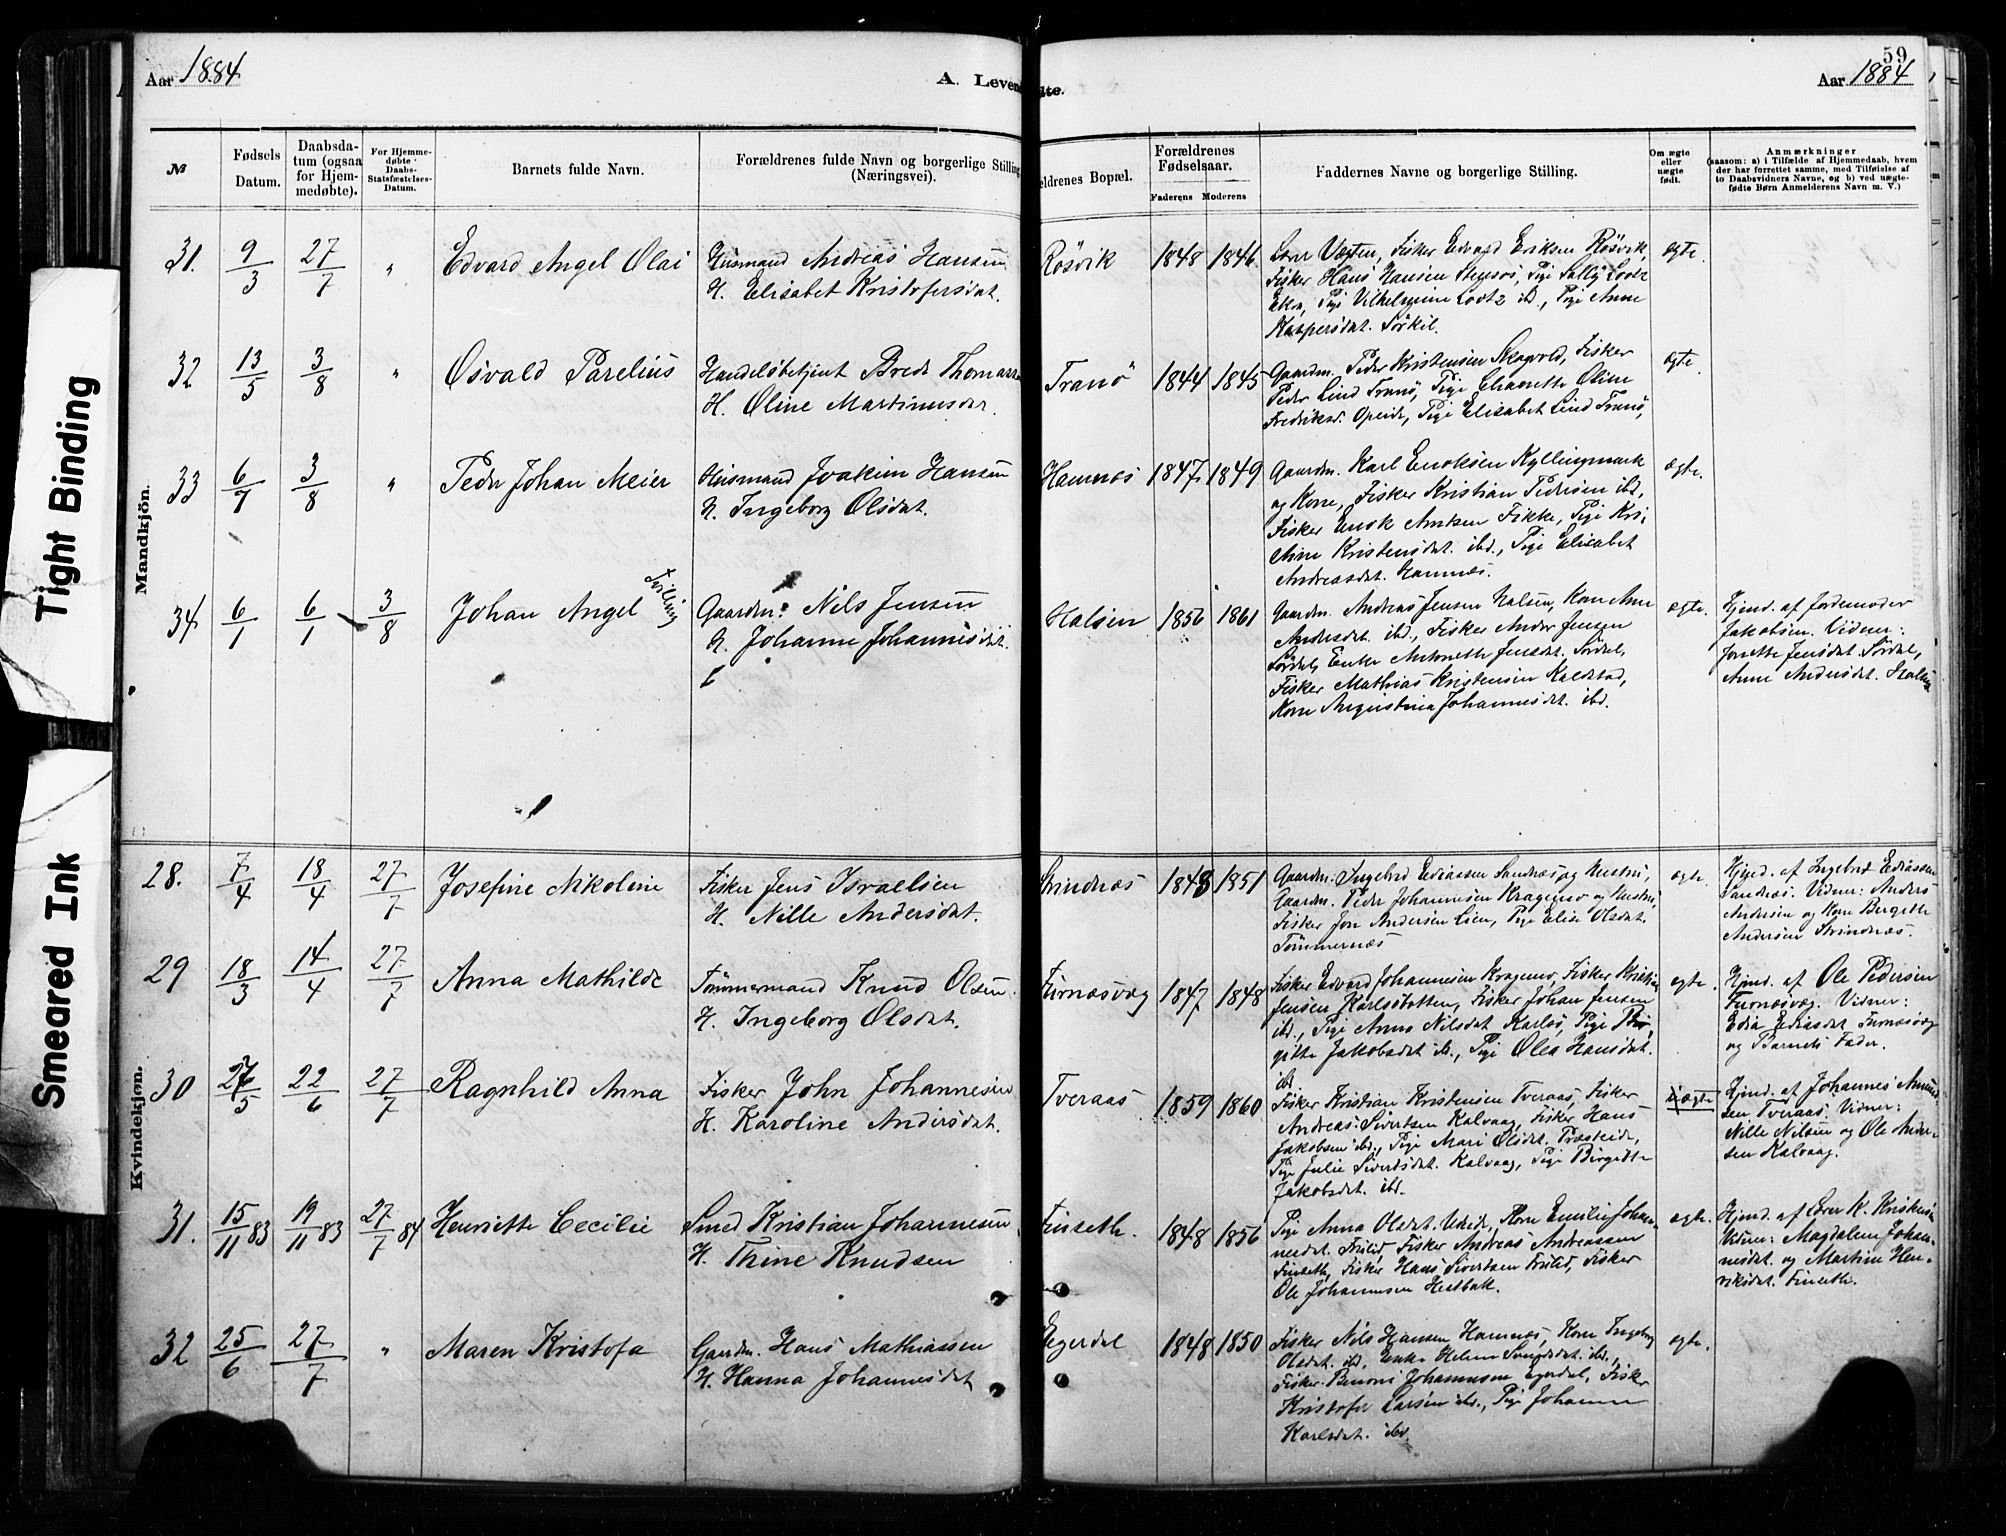 59
Aar 1884
A. Levend
dte.
Aar 1884
№
Fødsels Datum.
Daabsda-
tum (ogsaa
for Hjem-
medøbte).
For Hjemme-
døbte
Daabs-
Statsfæstelses-
Datum.
Barnets fulde Navn.
Forældrenes fulde Navn og borgerlige Stilling
(Næringsvei).
eldrenes Bopæl.
Forældrenes
Fødselsaar.
Faderens Moderens
Faddernes Navne og borgerlige Stilling.
Om ægte
eller
uægte
født.
Anmærkninger
(saasom: a) i Tilfælde af Hjemmedaab, hvem
der har forrettet samme, med Tilføielse af
to Daabsvidners Navne, og b) ved uægte-
fødte Børn Anmelderens Navn m. V.)
Mandkjön.
31. 9/3 27/7 " Edvard Angel Olai
Husmand Andreas Hansen
H. Elisabet Kristofersdat.
Røsvik 1848 1846
Fisker Edvard Eriksen Røsvik,
Fisker Hans Hansen
Pige Vilhelmine ibd., Pige Anne
Kaspersdat. Sörkil.
ægte.
32 13/5 3/8 " Osvald Parelius
Handelsbetjent Brede
H. Oline Martinusdat.
Tranö 1844 1845
Gaardm. Peder Kristensen Skogvold, Fisker
Peder Lind Tranö, Pige Oline
Fredriksd. Opeide, Pige Elisabet Lind Tranö,
ægte.
33 6/7 3/8 " Peder Johan Meier
Husmand Joakim Hansen
H. Ingeborg Olsdat.
Hamnæs 1847 1849
Gaardm. Karl Enoksen Kyllingmark
og Kone, Fisker Kristian Pedersen ibd,
Fisker Enok Pige Kri-
stine Kristensdat. ibd., Pige Elisabet
Andreasdat. Hamnæs.
ægte.
34 6/1 6/1 3/8 Johan Angel Tvilling
Gaardm. Nils Jensen
H. Johanne Johannesdat.
Halsen 1856 1861
Gaardm. Andreas Jensen Halsen, Kone Ane
Andersdat. ibd., Fisker Ander Jensen
Sørdal, Enke Antonette Jensdat. Sørdal,
Fisker Mathias Kristensen Kaldstad,
Kone Augustina Johannesdat. ibd.
ægte.
Hjemd. af Jordemoder
Jakobsen. Vidner:
Jonette Jensdat. Sørdal,
Anne Andersdat. Halsen
Kvindekjøn.
28. 7/4 18/4 27/7 Josefine Nikoline
Fisker Jens Israelsen
H. Nille Andersdat.
Strindnæs 1848 1851
Gaardm. Ingebrd Ediassen Sandnæs og Hustru,
Gaardm. Peder Johannesen Kragemo og Hustru,
Fisker Jon Andersen Lien, Pige Elise Olsdat.
Tømmernæs
ægte.
Hjemd. af Ingebrd Ediassen
Sandnæs. Vidner: Anders
Andersen og Kone Bergitte
Andersen Strindnæs.
29 18/3 14/4 27/7 Anna Mathilde
Tømmermand Knud Olsen.
H. Ingeborg Olsdat.
Furnæsvæg 1847 1848
Fisker Edvard Johannesen Kragemo, Fisker Kristian
Jensen Karlsöbotten, Fisker Johan Jensen
ibd., Pige Anna Nilsdat Karlsö, Pige Bir-
gitte Jakobsdat ib., Pige Olea Hansdat.
ibd.
egte.
Hjemd. af Ole Pedersen
Furnæsvæg. Vidner:
Edia Ediasdat Furnæsvæg
og Barnets Fader.
30 26/5 22/6 27/7 Ragnhild Anna
Fisker John Johannesen
H. Karoline Andersdat.
Tveraas 1859 1860
Fisker Kristian Kristensen Tveraas, Fisker
Andreas Sivertsen Kalvaag, Fisker Hans
Jakobsen ibd., Pige Mari Olsdat. Præsteide,
Pige Julie Siverdsdat. Kalvaag, Pige Birgitte
Jakobsdat. ibd.
uægte
Hjemd. af Johannes Amund-
sen Tveraas. Vidner:
Nille Nilsen og Ole Ander-
sen Kalvaag.
31. 15/11 83 19/11 83 27/7 84 Henriette Cecilie
Smed Kristian Johannesen
H. Thine Knudsen
Finseth. 1848 1856
Pige Anna Olsdat. Uteide, Kone Emilie Johan-
nesdat. Trulid, Fisker Andreas Andreassen
Finseth, Fisker Hans Sivertsen Trulid, Fisker
Ole Johannesen Hestbak.
egte.
Hjemd. af Lærer K. Kristensen
Vidner: Magdalene Johan-
nesdat. og Martine Hen-
riksdat. Finseth.
32 25/6 27/7 " Maren Kristofa
Gaardm. Hans Mathiassen
H. Hanna Johannesdat
Egerdal 1848 1850
Fisker Nils Hansen Hamnæs, Kone Ingeborg
Olsdat. ibd, Enke Helene ibd.,
Fisker Benoni Johannesen Egerdal, Fisker
Kristofer Larsen ibd., Pige Johanne
Karlsdat. ibd.
egte.
Tight Binding
Smeared Ink